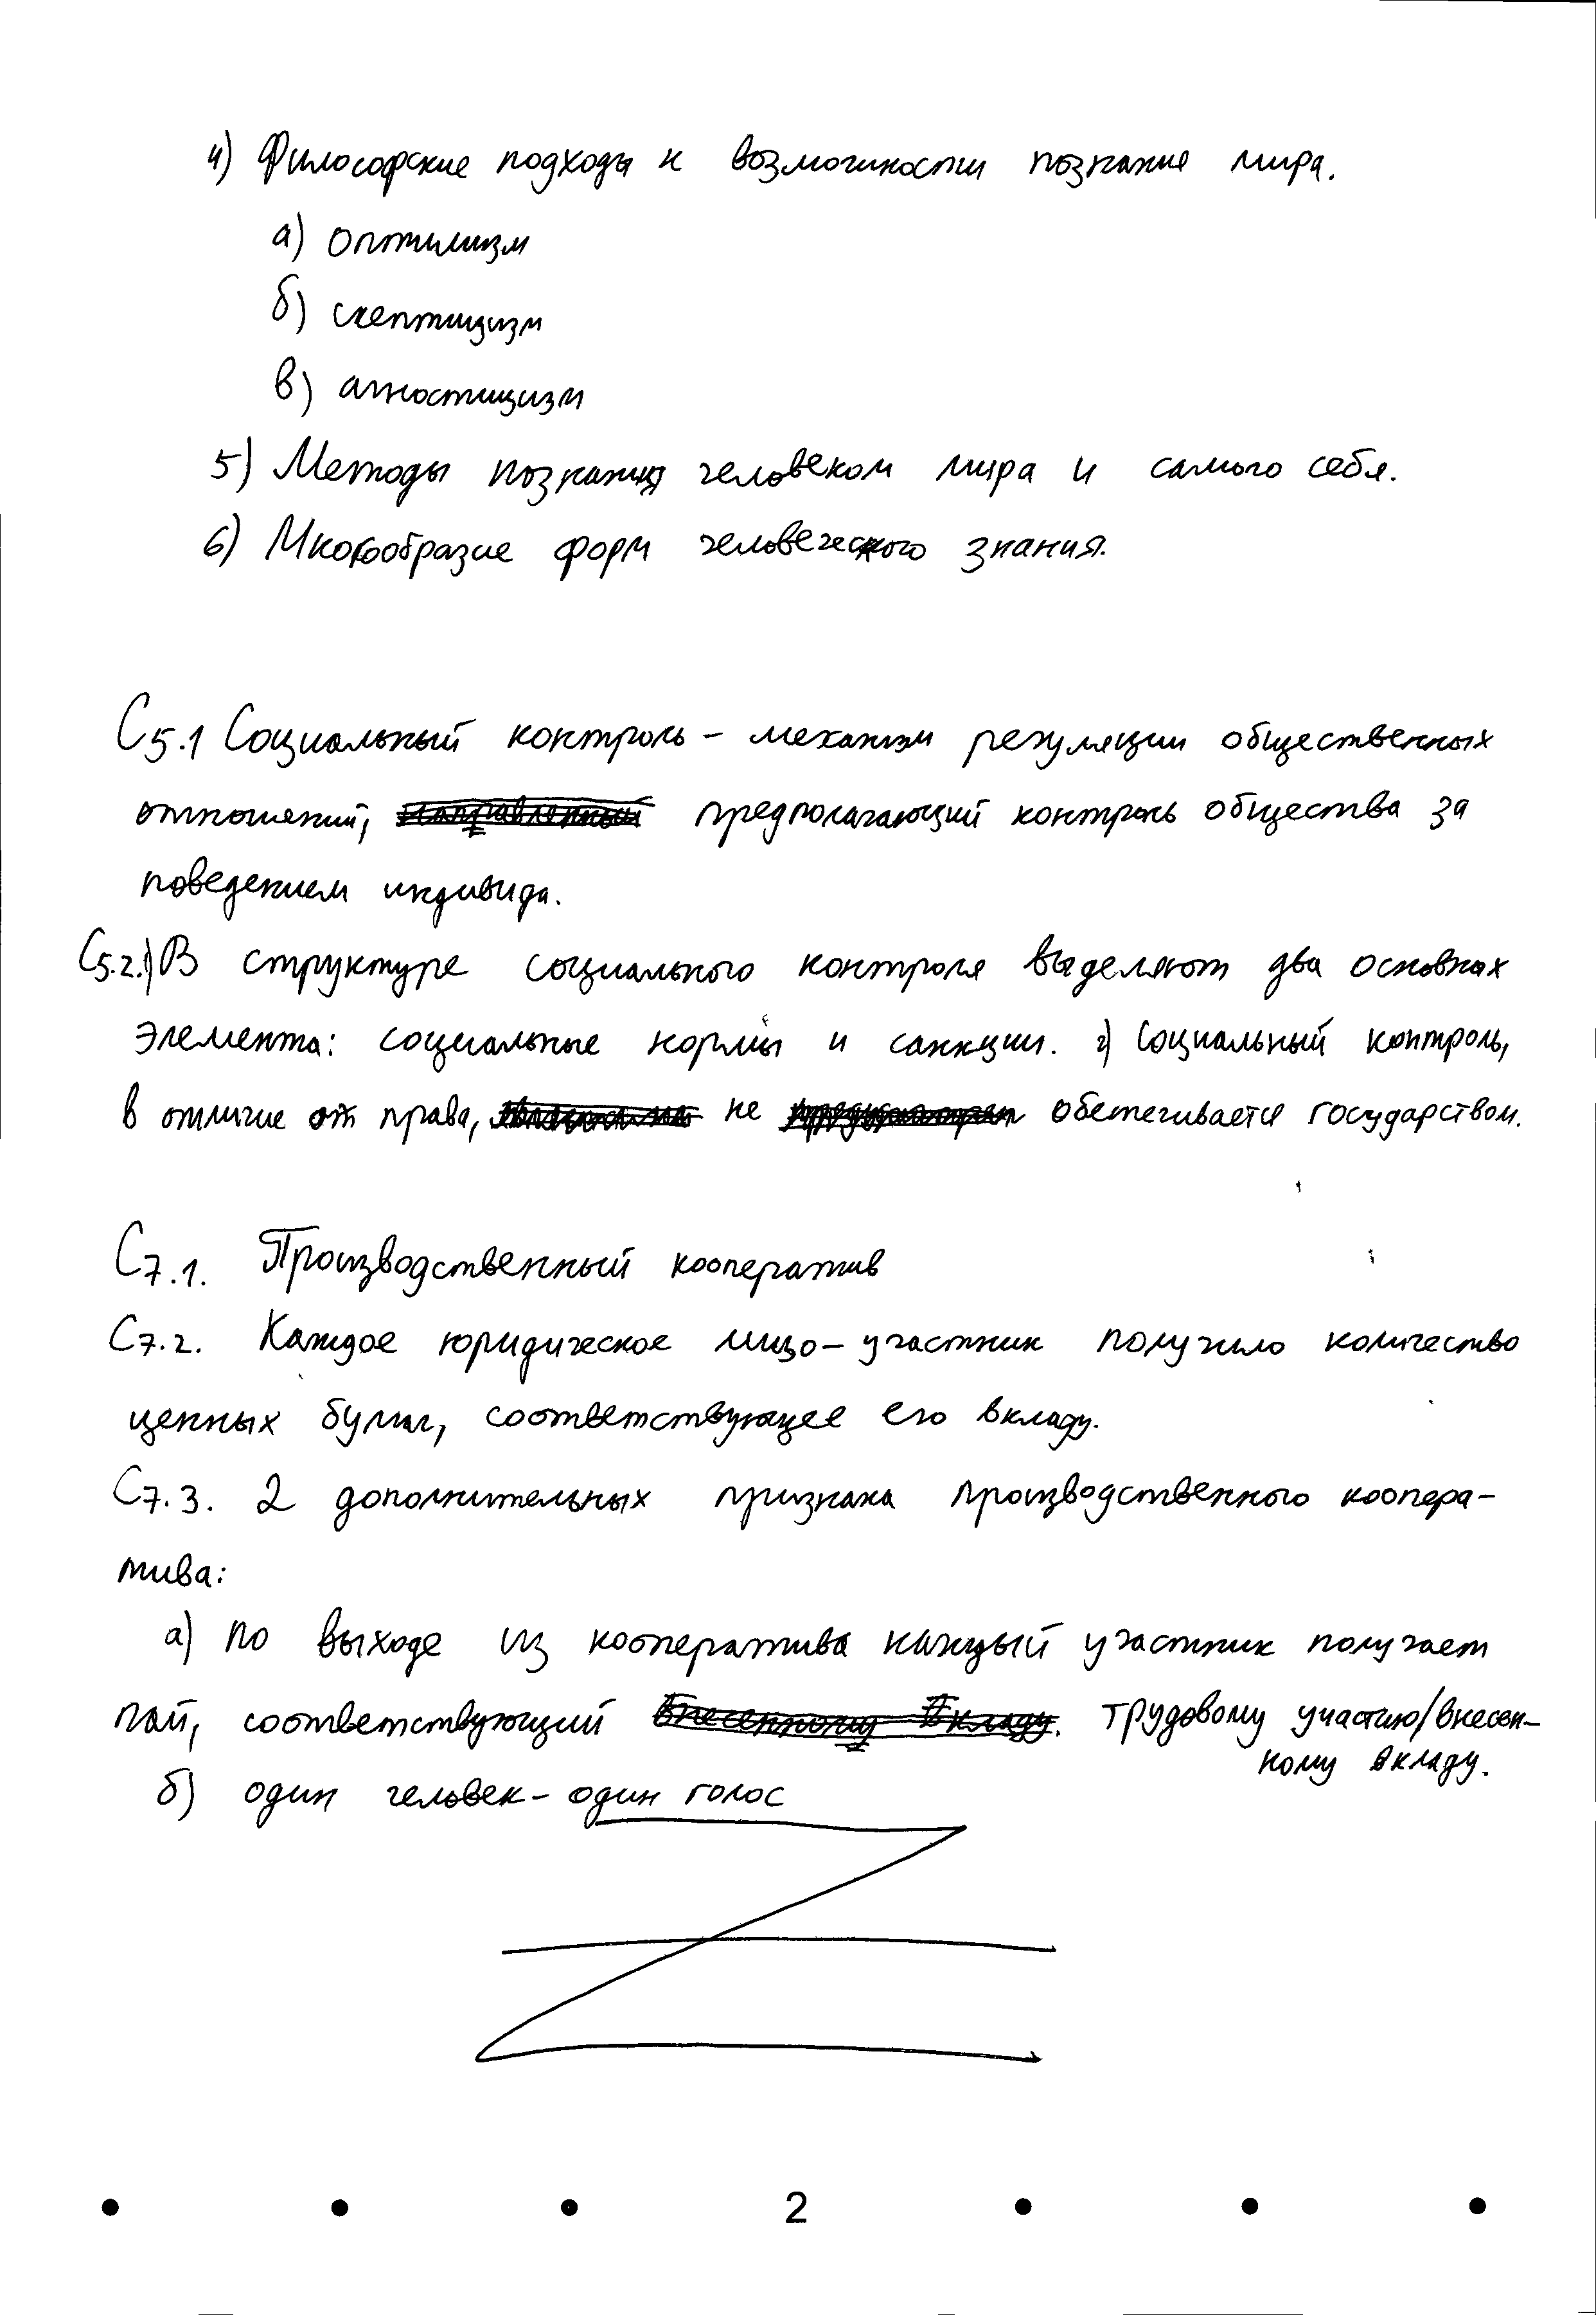 4) Философские подходы к возможности познание мира.
а) оптимизм
б) скептицизм
в) агностицизм
5) Методы познания человеком мира и самого себя.
6) Многообразие форм человеческого знания.
С5.1 Социальный контроль – механизм регуляции общественных
отношений, направленный предполагающий контроль общества за
поведением индивида.
С5.2.1) В структуре социального контроля выделяют два основных
элемента: социальные нормы и санкции. 2) Социальный контроль,
в отличие от права, не обеспечивается государством.
С7.1. Производственный кооператив
С7.2. Каждое юридическое лицо – участник получило количество
ценных бумаг, соответствующее его вкладу.
С7.3. 2 дополнительных признака производственного коопера-
тива:
а) по выходе из кооператива каждый участник получает
пай, соответствующий внесенному вкладу. трудовому участию/внесен-
ному вкладу.
б) один человек – один голос
2